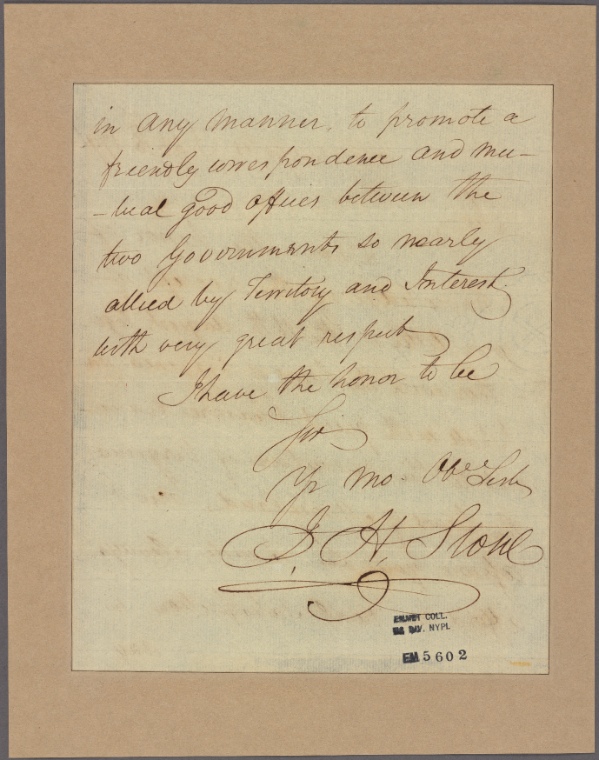 in any manner, to promote a
friendly correspondence and mu-
-tual good offices between the
two Governments so nearly
allied by Territory and Interest.
with very great respect
I have the honor to be
Sir
Yr mo. Obe. Servt
J. H. Stone
EMMET COLL.
MS DIV. NYPL
EM 5602